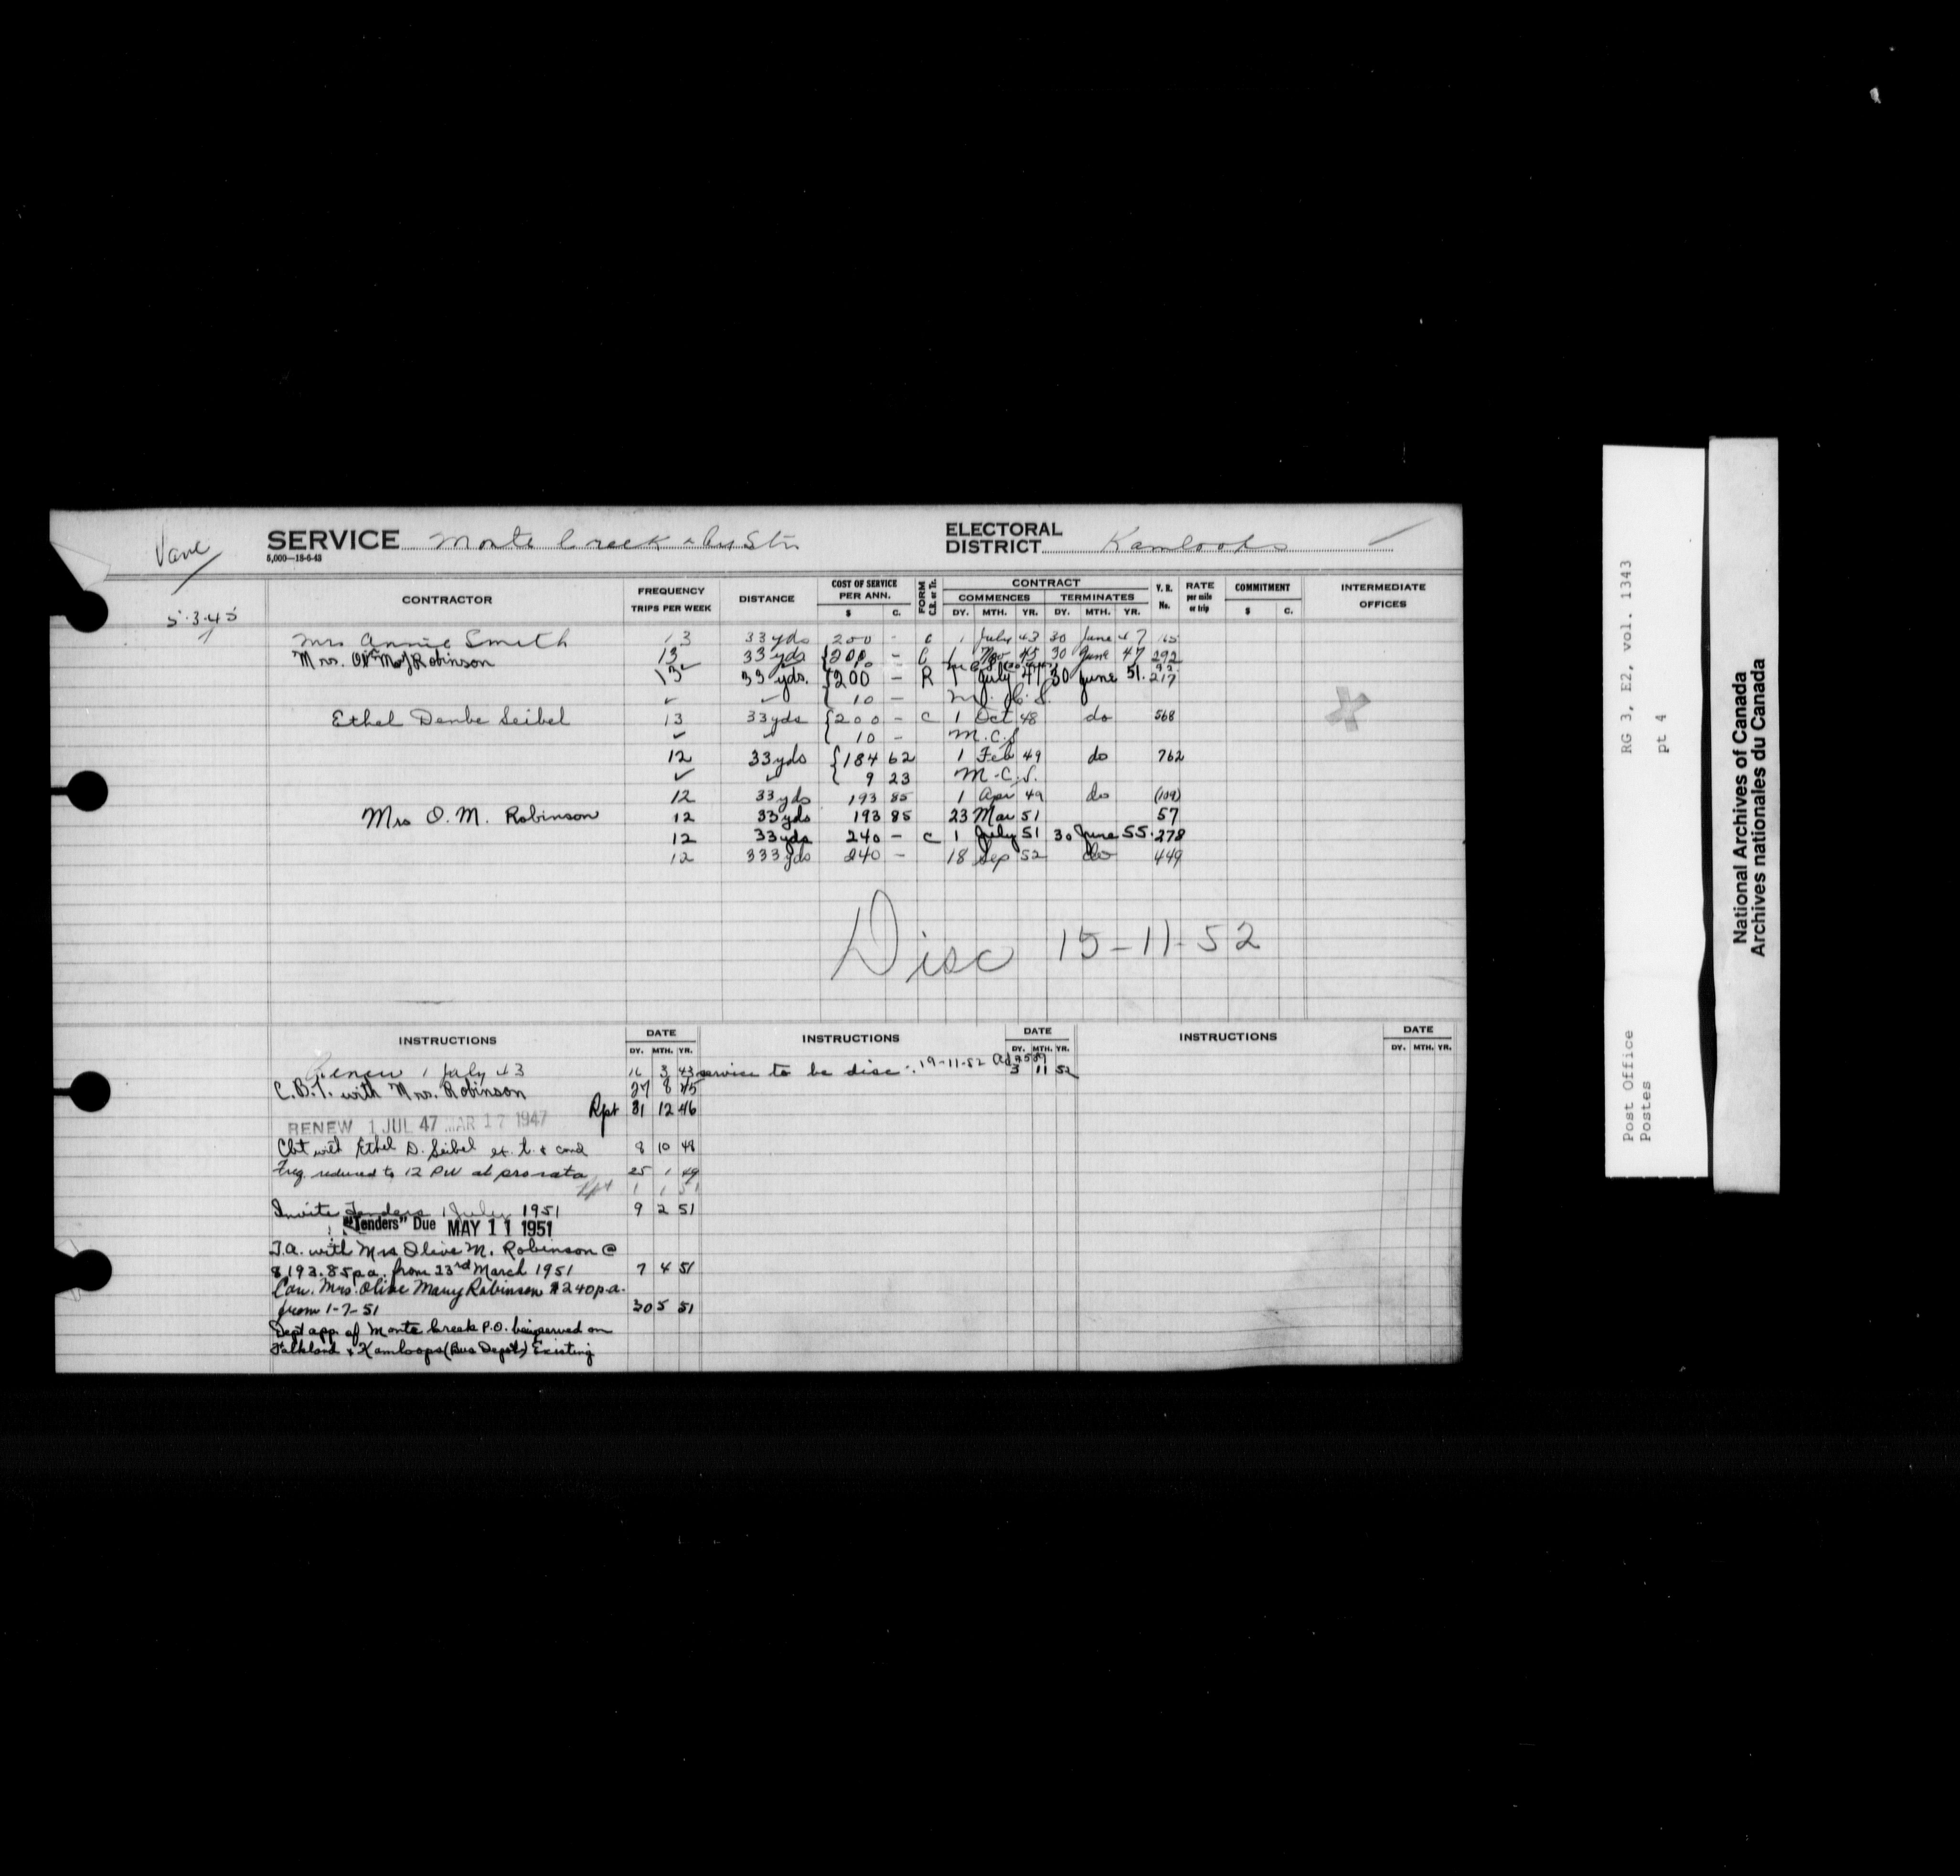 Vanc
SERVICE Monte Creek & Ry Stn
5,000—18-6-43
ELECTORAL DISTRICT Kamloops
5·3·45
CONTRACTOR FREQUENCY TRIPS PER WEEK DISTANCE COST OF SERVICE PER ANN. $ C. FORM C.R. or Tr. CONTRACT COMMENCES DY. MTH. YR. TERMINATES DY. MTH. YR. V. R. No. RATE per mile or trip COMMITMENT $ C. INTERMEDIATE OFFICES
Mrs Annie Smith 13 33 yds 200 - C 1 July 43 30 June 47 165
Mrs. O. M. Robinson 13 33 yds {200 - C 1 Nov 45 30 June 47 292
10
13 33 yds. {200 - R 1 July 47 30 June 51. 217
✓ ✓ 10 - M. C. S.
Ethel Denbe Seibel 13 33 yds {200 - C 1 Oct 48 do 568
✓ ✓ 10 - M.C.S
12 33 yds {184 62 1 Feb 49 do 762
✓ ✓ 9 23 M.C.S.
12 33 yds 193 85 1 Apr 49 do (109)
Mrs O. M. Robinson 12 33 yds 193 85 23 Mar 51 57
12 33 yds 240 - C 1 July 51 30 June 55. 278
12 333 yds 240 - 18 Sep 52 do 449
Disc 15-11-52
INSTRUCTIONS DATE DY. MTH. YR. INSTRUCTIONS DATE DY. MTH. YR. INSTRUCTIONS DATE DY. MTH. YR.
Renew 1 July 43 16 3 43
service to be disc. 19-11-52 3 11 52
C.B.T. with Mrs. Robinson 27 8 45
Rpt 31 12 46
RENEW 1 JUL 47 MAR 17 1947
Cbt with Ethel D. Seibel ex. t. & cond 8 10 48
Freq. reduced to 12 PW at pro rata 25 1 49
Rpt 1 1 51
Invite Tenders 1 July 1951 9 2 51
"Tenders" Due MAY 11 1951
T.a. with Mrs Olive M. Robinson @
$193.85 p.a. from 23rd March 1951 7 4 51
Con. Mrs. Olive Mary Robinson $240 p.a.
from 1-7-51 30 5 51
Dept app. of Monte Creek P.O. being served on
Falkland & Kamloops (Bus Depot) Existing
RG 3, E2, vol. 1343
pt 4
Post Office
Postes
National Archives of Canada
Archives nationales du Canada